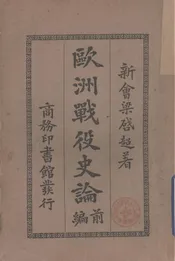 新會梁啓超著
歐洲戰役史論
前編
商務印書館發行